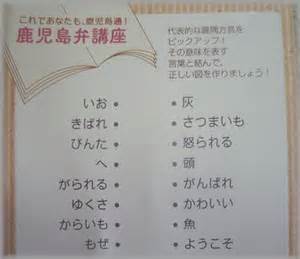 これであなたも、鹿児島通!
鹿児島弁講座
代表的な鹿児島方言を
ピックアップ!
その意味を表す
言葉と結んで、
正しい図を作りましょう!
いお • • 灰
きばれ • • さつまいも
びんた • • 怒られる
へ • • 頭
がられる • • がんばれ
ゆくさ • • かわいい
からいも • • 魚
もぜ • • ようこそ